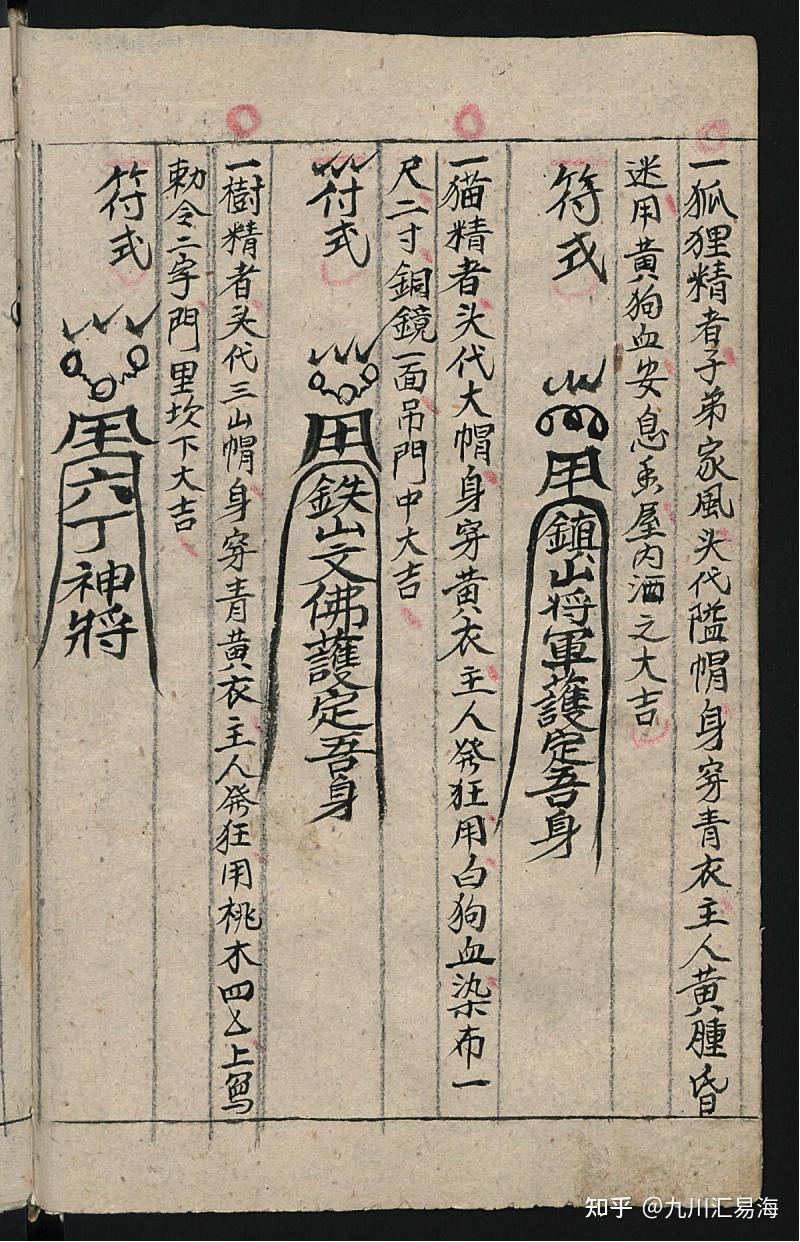 一狐狸精者子弟家風头代隘帽身穿青衣主人黃腫昏
迷用黃狗血安息香屋内洒之大吉
符式
鎮山將軍護定吾身
一猫精者头代大帽身穿黃衣主人発狂用白狗血染布一
尺二寸銅鏡一面吊門中大吉
符式
鉄山文佛護定吾身
一樹精者头代三山帽身穿青黃衣主人発狂用桃木四
上寫
勅令二字門里坎下大吉
符式
六丁神將
知乎 @九川汇易海